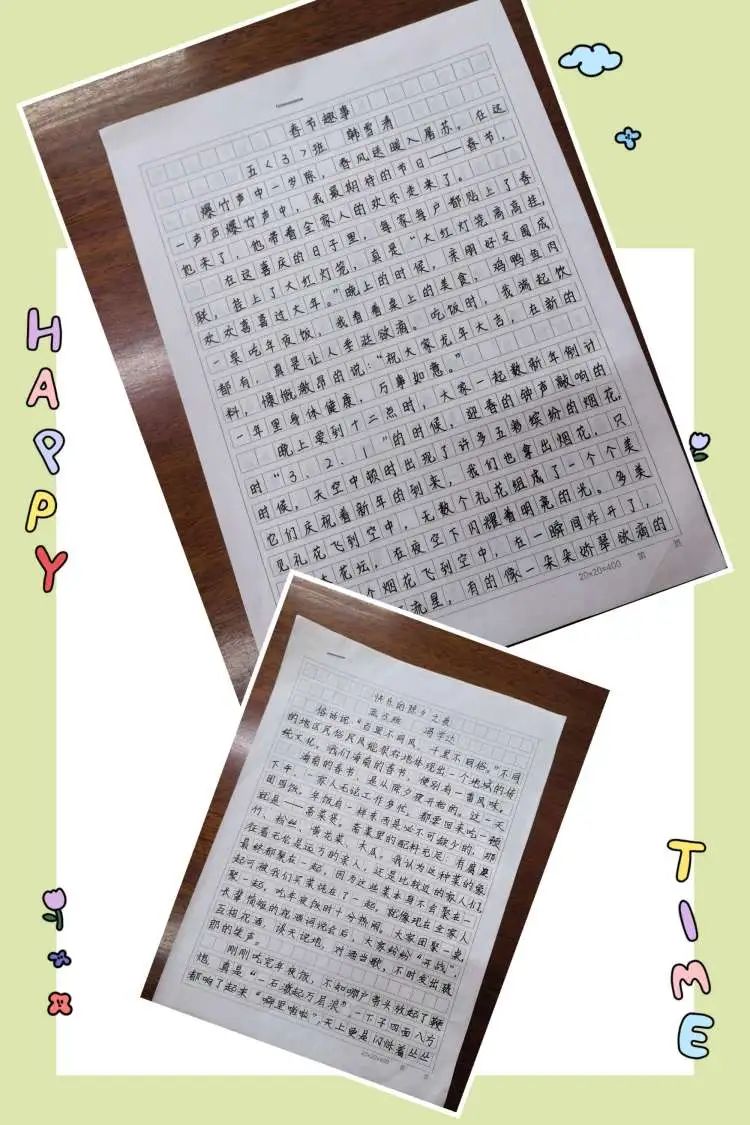 春节趣事
五<3>班 韩雪清
爆竹声中一岁除，春风送暖入屠苏。在这
一声声爆竹声中，我最期待的节日——春节，
他来了，他带着全家人的欢乐走来了。
在这喜庆的日子里，每家每户都贴上了春
联，挂上了大红灯笼，真是“大红灯笼高高挂，
欢欢喜喜过大年。”晚上的时候，亲朋好友围成
一桌吃年夜饭，我看着桌上的美食，鸡鸭鱼肉
都有，真是让人垂涎欲滴。吃饭时，我端起饮
料，慷慨激昂的说：“祝大家龙年大吉，在新的
一年里身体健康，万事如意。”
晚上要到十二点时，大家一起数新年倒计
时“3、2、1”的时候，迎春的钟声敲响的
时候，天空中顿时出现了许多五彩缤纷的烟花，
它们庆祝着新年的到来，我们也拿出烟花，只
见礼花飞到空中，无数个礼花组成了一个个美
花坛，在夜空下闪耀着明亮的光。多美
个烟花飞到空中，在一瞬间炸开了，
流星，有的像一朵朵娇翠欲滴的
20×20=400 第 页
HAPPY
快乐的除夕之夜
冯学达
俗话说：“百里不同风，千里不同俗。”不同
的地区民俗民风能很好地体现出一个地域的传
统文化。我们海南的春节，便别有一番风味。
海南的春节，是从除夕夜开始的。这一天
下午，一家人无论工作多忙，都要回来吃一顿
团圆饭。年饭有一样东西是必不可缺少的，那
就是——斋菜煲。斋菜里的配料充足，有腐
竹、粉丝、黄花菜、木瓜。我认为这种菜的象
征着无论是远方的亲人，还是比较近的家人们，
最终都聚在一起，因为这些菜本身不会聚在一
起可被我们买菜混在了一起，就像现在全家人
聚一起，吃年夜饭时十分热闹。大家团聚一桌，
长辈情短的祝酒词说会后，大家纷纷“开战”，
互相祝酒，谈天说地，对酒当歌，不时发出琅
郎的笑声。
刚刚吃完年夜饭，不知哪户带头放起了鞭
炮，真是“一石激起万层浪”，一下子四面八方
都响了起来“噼里啪啦”，天上更是闪烁着丛丛
20×20=400 第 页
TIME